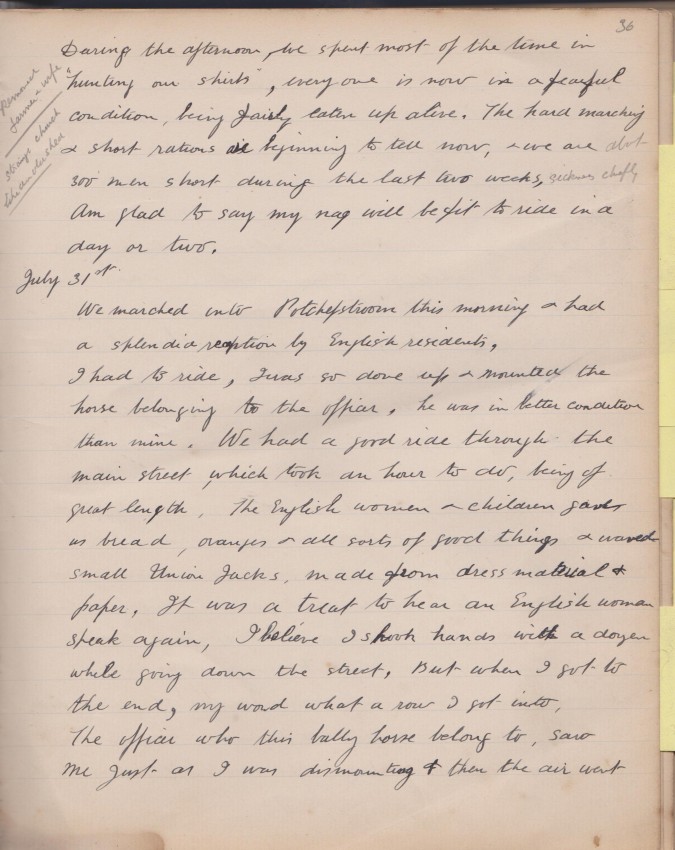 36
During the afternoon, we spent most of the time in
"hunting our shirts", everyone is now in a fearful
condition, being fairly eaten up alive. The hard marching
& short rations are beginning to tell now, & we are abt
300 men short during the last two weeks, sickness chiefly
Am glad to say my nag will be fit to ride in a
day or two.
July 31st.
We marched into Potchefstroom this morning & had
a splendid reception by English residents,
I had to ride, I was so done up & mounted the
horse belonging to the officer, he was in better condition
than mine. We had a good ride through the
main street, which took an hour to do, being of
great length. The English women & children gave
us bread, oranges & all sorts of good things & waved
small Union Jacks, made from dress material &
paper. It was a treat to hear an English woman
speak again, I believe I shook hands with a dozen
while going down the street. But when I got to
the end, my word what a row I got into,
The officer who this bally horse belong to, saw
me just as I was dismounting & then the air went
farmer & wife
church